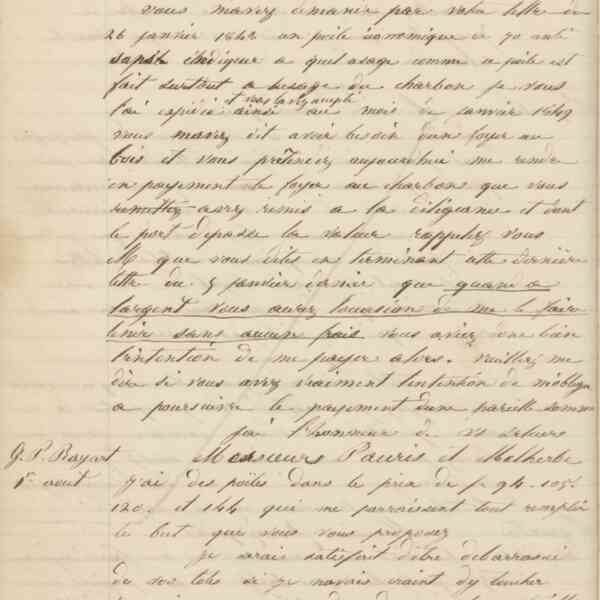 vous mavez demandé par votre lettre du
26 janvier 1842 un poële économique de 70 
sans indiquer a quel usage comme ce poële est
fait surtout a lusage du charbon je vous
l'ai expédié ainsi au mois de janvier 1849
et vous lavez accepté
vous mavez dit avoir besoin dun foyer au
bois et vous prétendez aujourdhui me rendre
en payement le foyer au charbons que vous
remettez avez remis a la diligeance et dont
le port dépasse la valeur rappelez vous
M que vous dites en terminant cette dernière
lettre du 5 janvier dernier que quand a
largent vous aurez loccasion de me le faire
tenir sans aucun frais vous aviez donc bien
lintention de me payer alors. veuillez me
dire si vous avez vraiment lintention de mobliger
a poursuivre le payement dune pareille somme
jai lhonneur de vs saluer
G. P. Bayart
1er aout
Messieurs Pauris et Malherbe
j'ai des poëles dans le prix de f 94. 105.
120. et 144 qui me parraissent tout remplir
le but que vous vous proposez
je serais satisfait dêtre débarrassé
de vos toles si je navais craint dy toucher